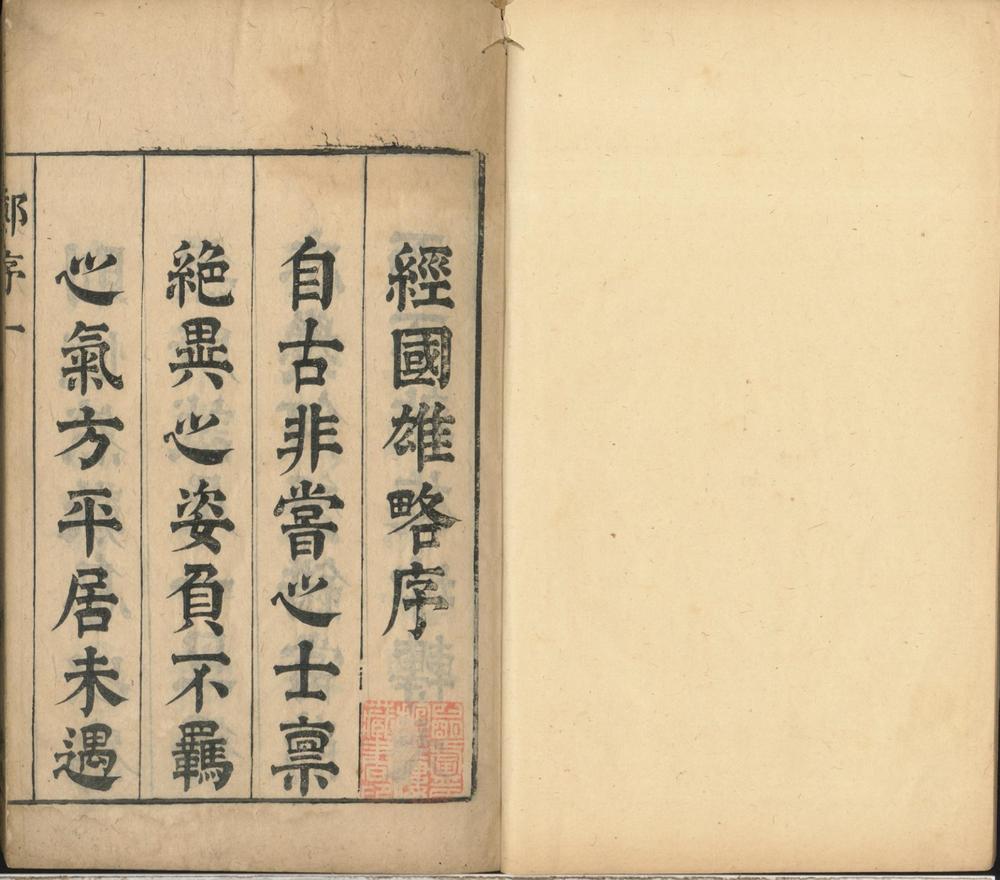 經國雄略序
自古非嘗之士禀
絶異之姿負不羈
之氣方平居未遇
鄭序 一